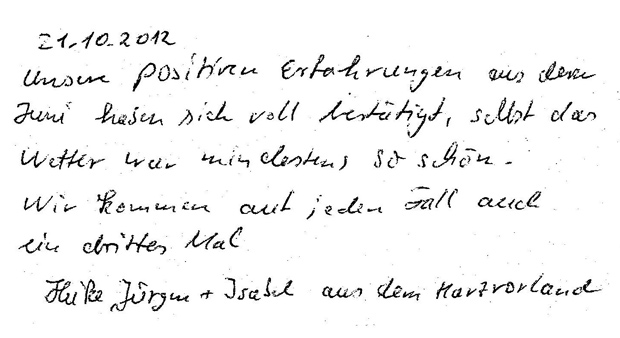 21.10.2012
Unsere positiven Erfahrungen aus dem
Juni haben sich voll bestätigt, selbst das
Wetter war mindestens so schön.
Wir kommen auf jeden Fall auch
ein drittes Mal
Heike, Jürgen + Isabel aus dem Harzvorland